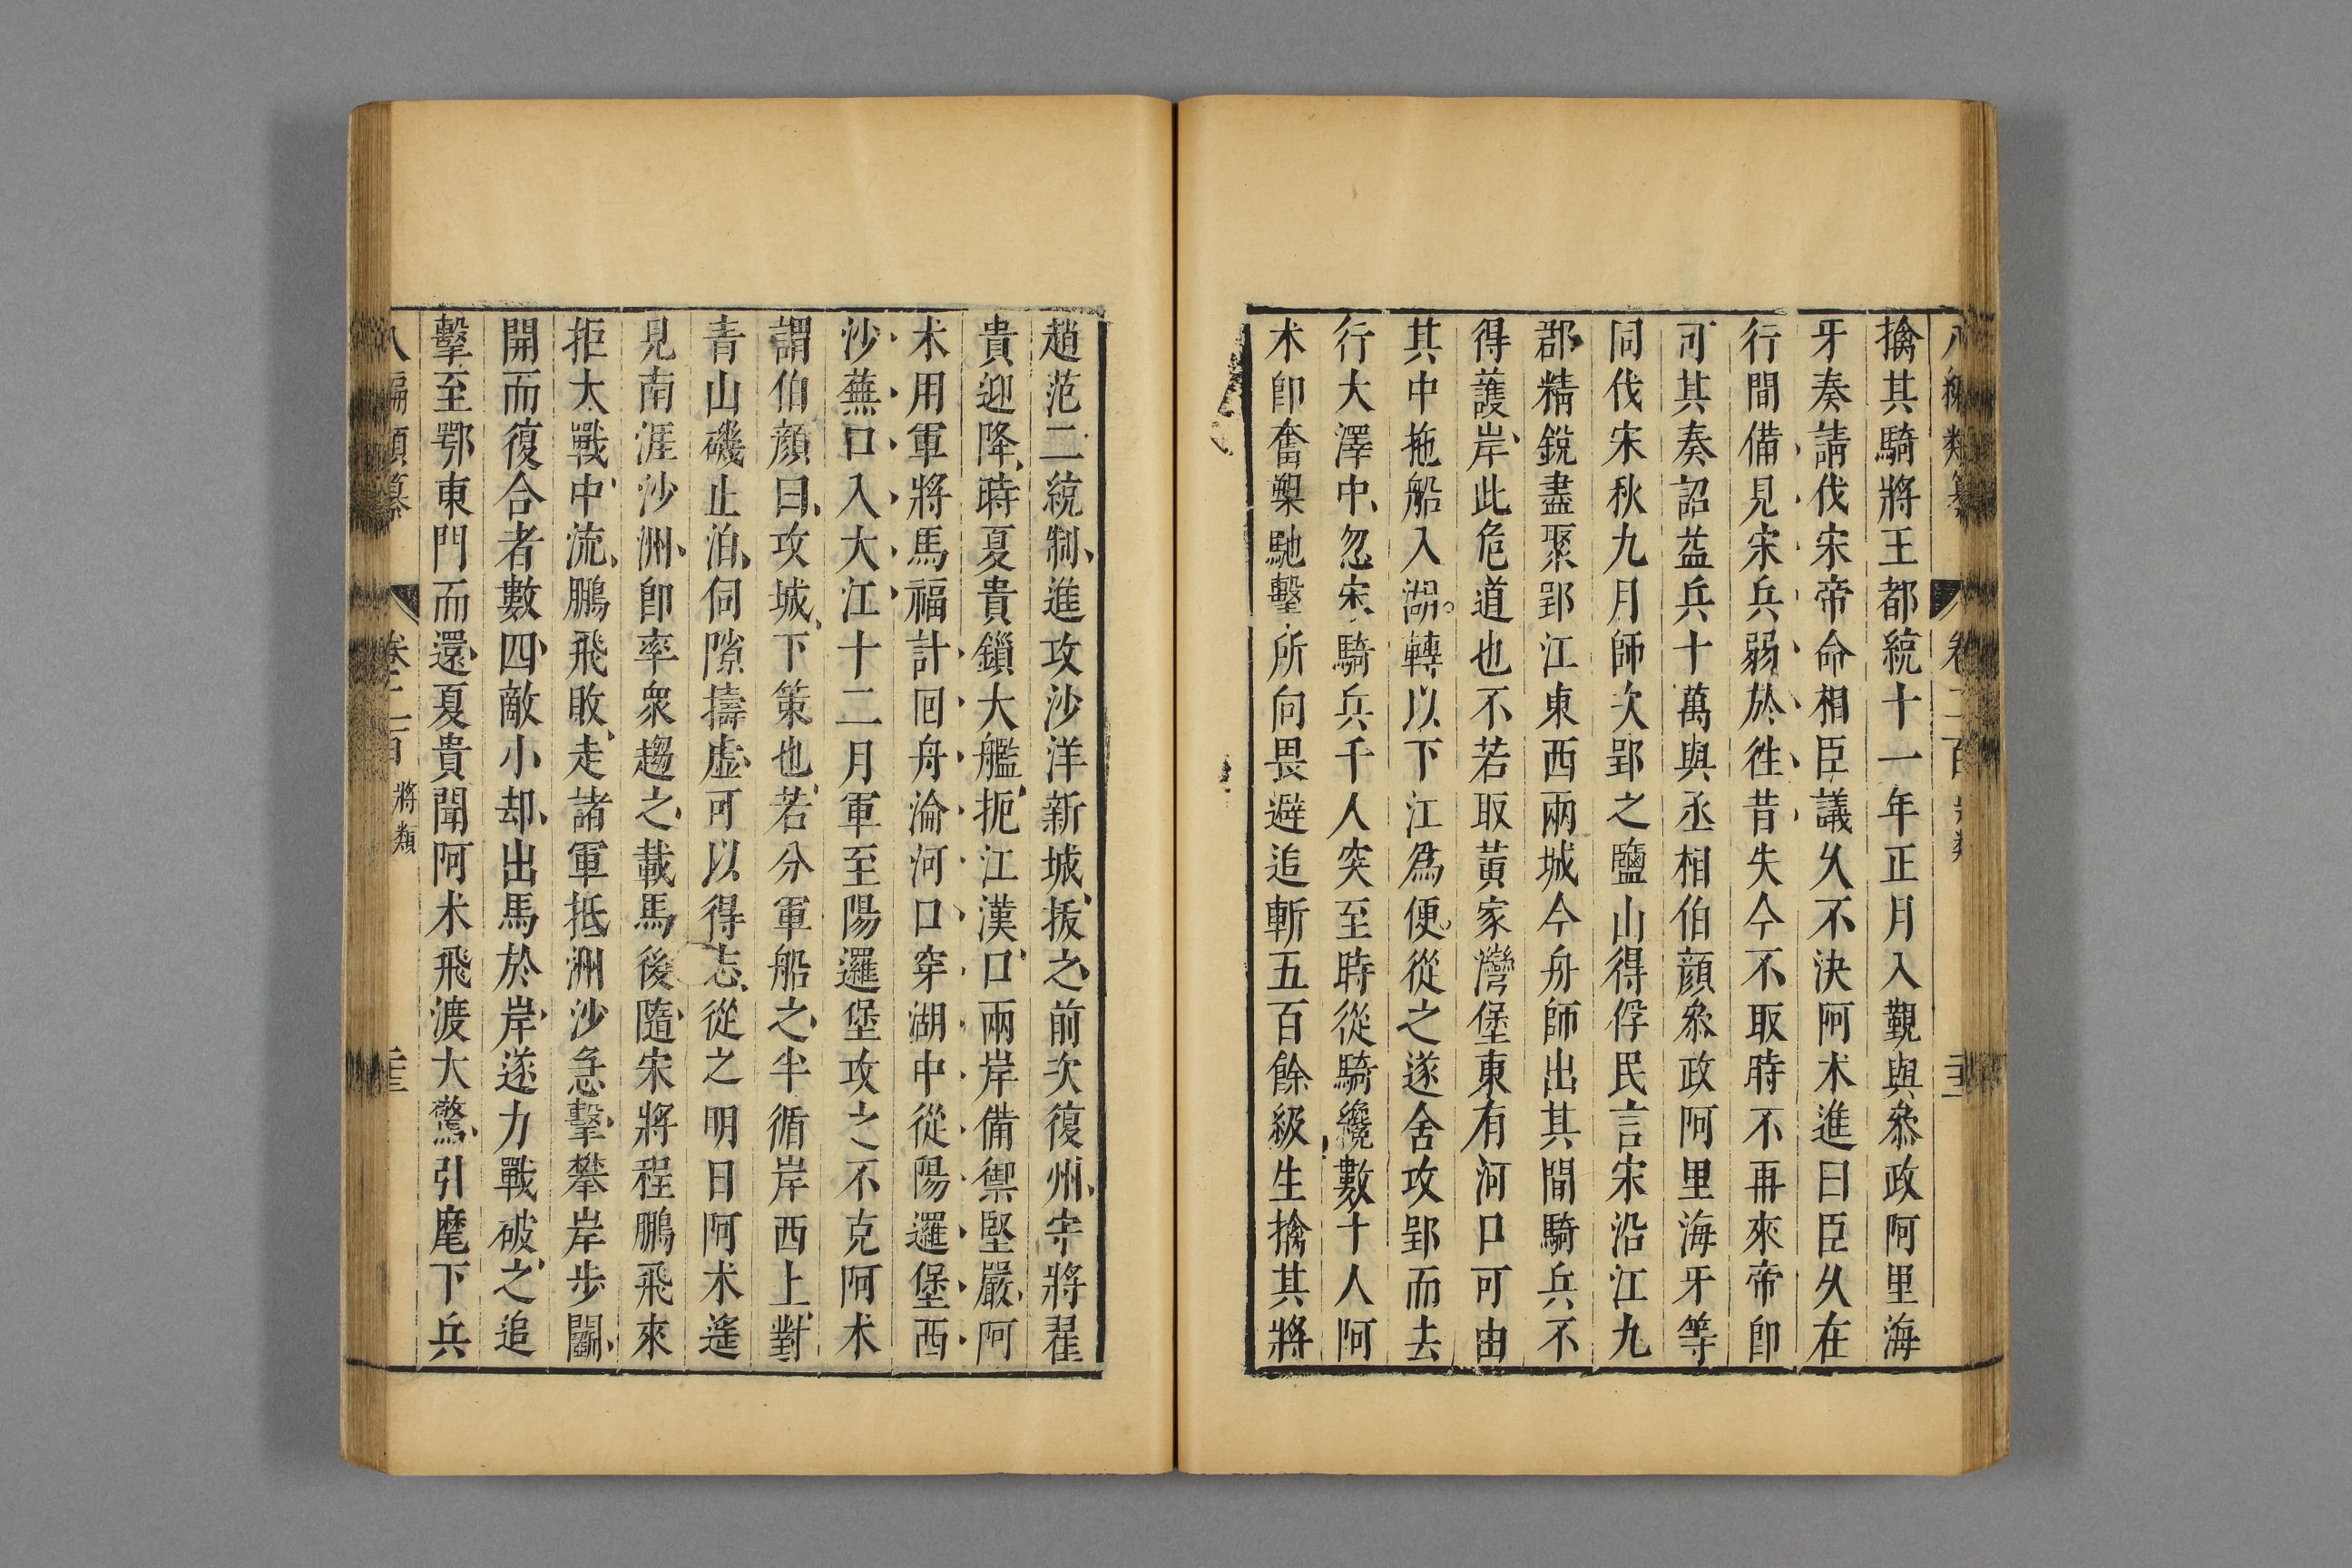 擒其騎將王都統十一年正月入覲與叅政阿里海
牙奏請伐宋帝命相臣議久不決阿术進曰臣久在
行間備見宋兵弱於徃昔失今不取時不再來帝卽
可其奏詔益兵十萬與丞相伯顔叅政阿里海牙等
同伐宋秋九月師次郢之鹽山得俘民言宋沿江九
郡精銳盡聚郢江東西兩城今舟師出其間騎兵不
得護岸此危道也不若取黃家灣堡東有河口可由
其中拖船入湖轉以下江爲便從之遂舍攻郢而去
行大澤中忽宋騎兵千人突至時從騎纔數十人阿
术卽奮槊馳擊所向畏避追斬五百餘級生擒其將
趙范二統制進攻沙洋新城拔之前次復州守將翟
貴迎降時夏貴鎖大艦扼江漢口兩岸備禦堅嚴阿
术用軍將馬福計囘舟淪河口穿湖中從陽邏堡西
沙蕪口入大江十二月軍至陽邏堡攻之不克阿术
謂伯顔曰攻城下策也若分軍船之半循岸西上對
青山磯止泊伺隙擣虚可以得志從之明日阿术遙
見南涯沙洲卽率衆趨之載馬後隨宋將程鵬飛來
拒大戰中流鵬飛敗走諸軍抵洲沙急擊攀岸步鬭
開而復合者數四敵小却出馬於岸遂力戰破之追
擊至鄂東門而還夏貴聞阿术飛渡大驚引麾下兵
八編類纂 卷二百 將類